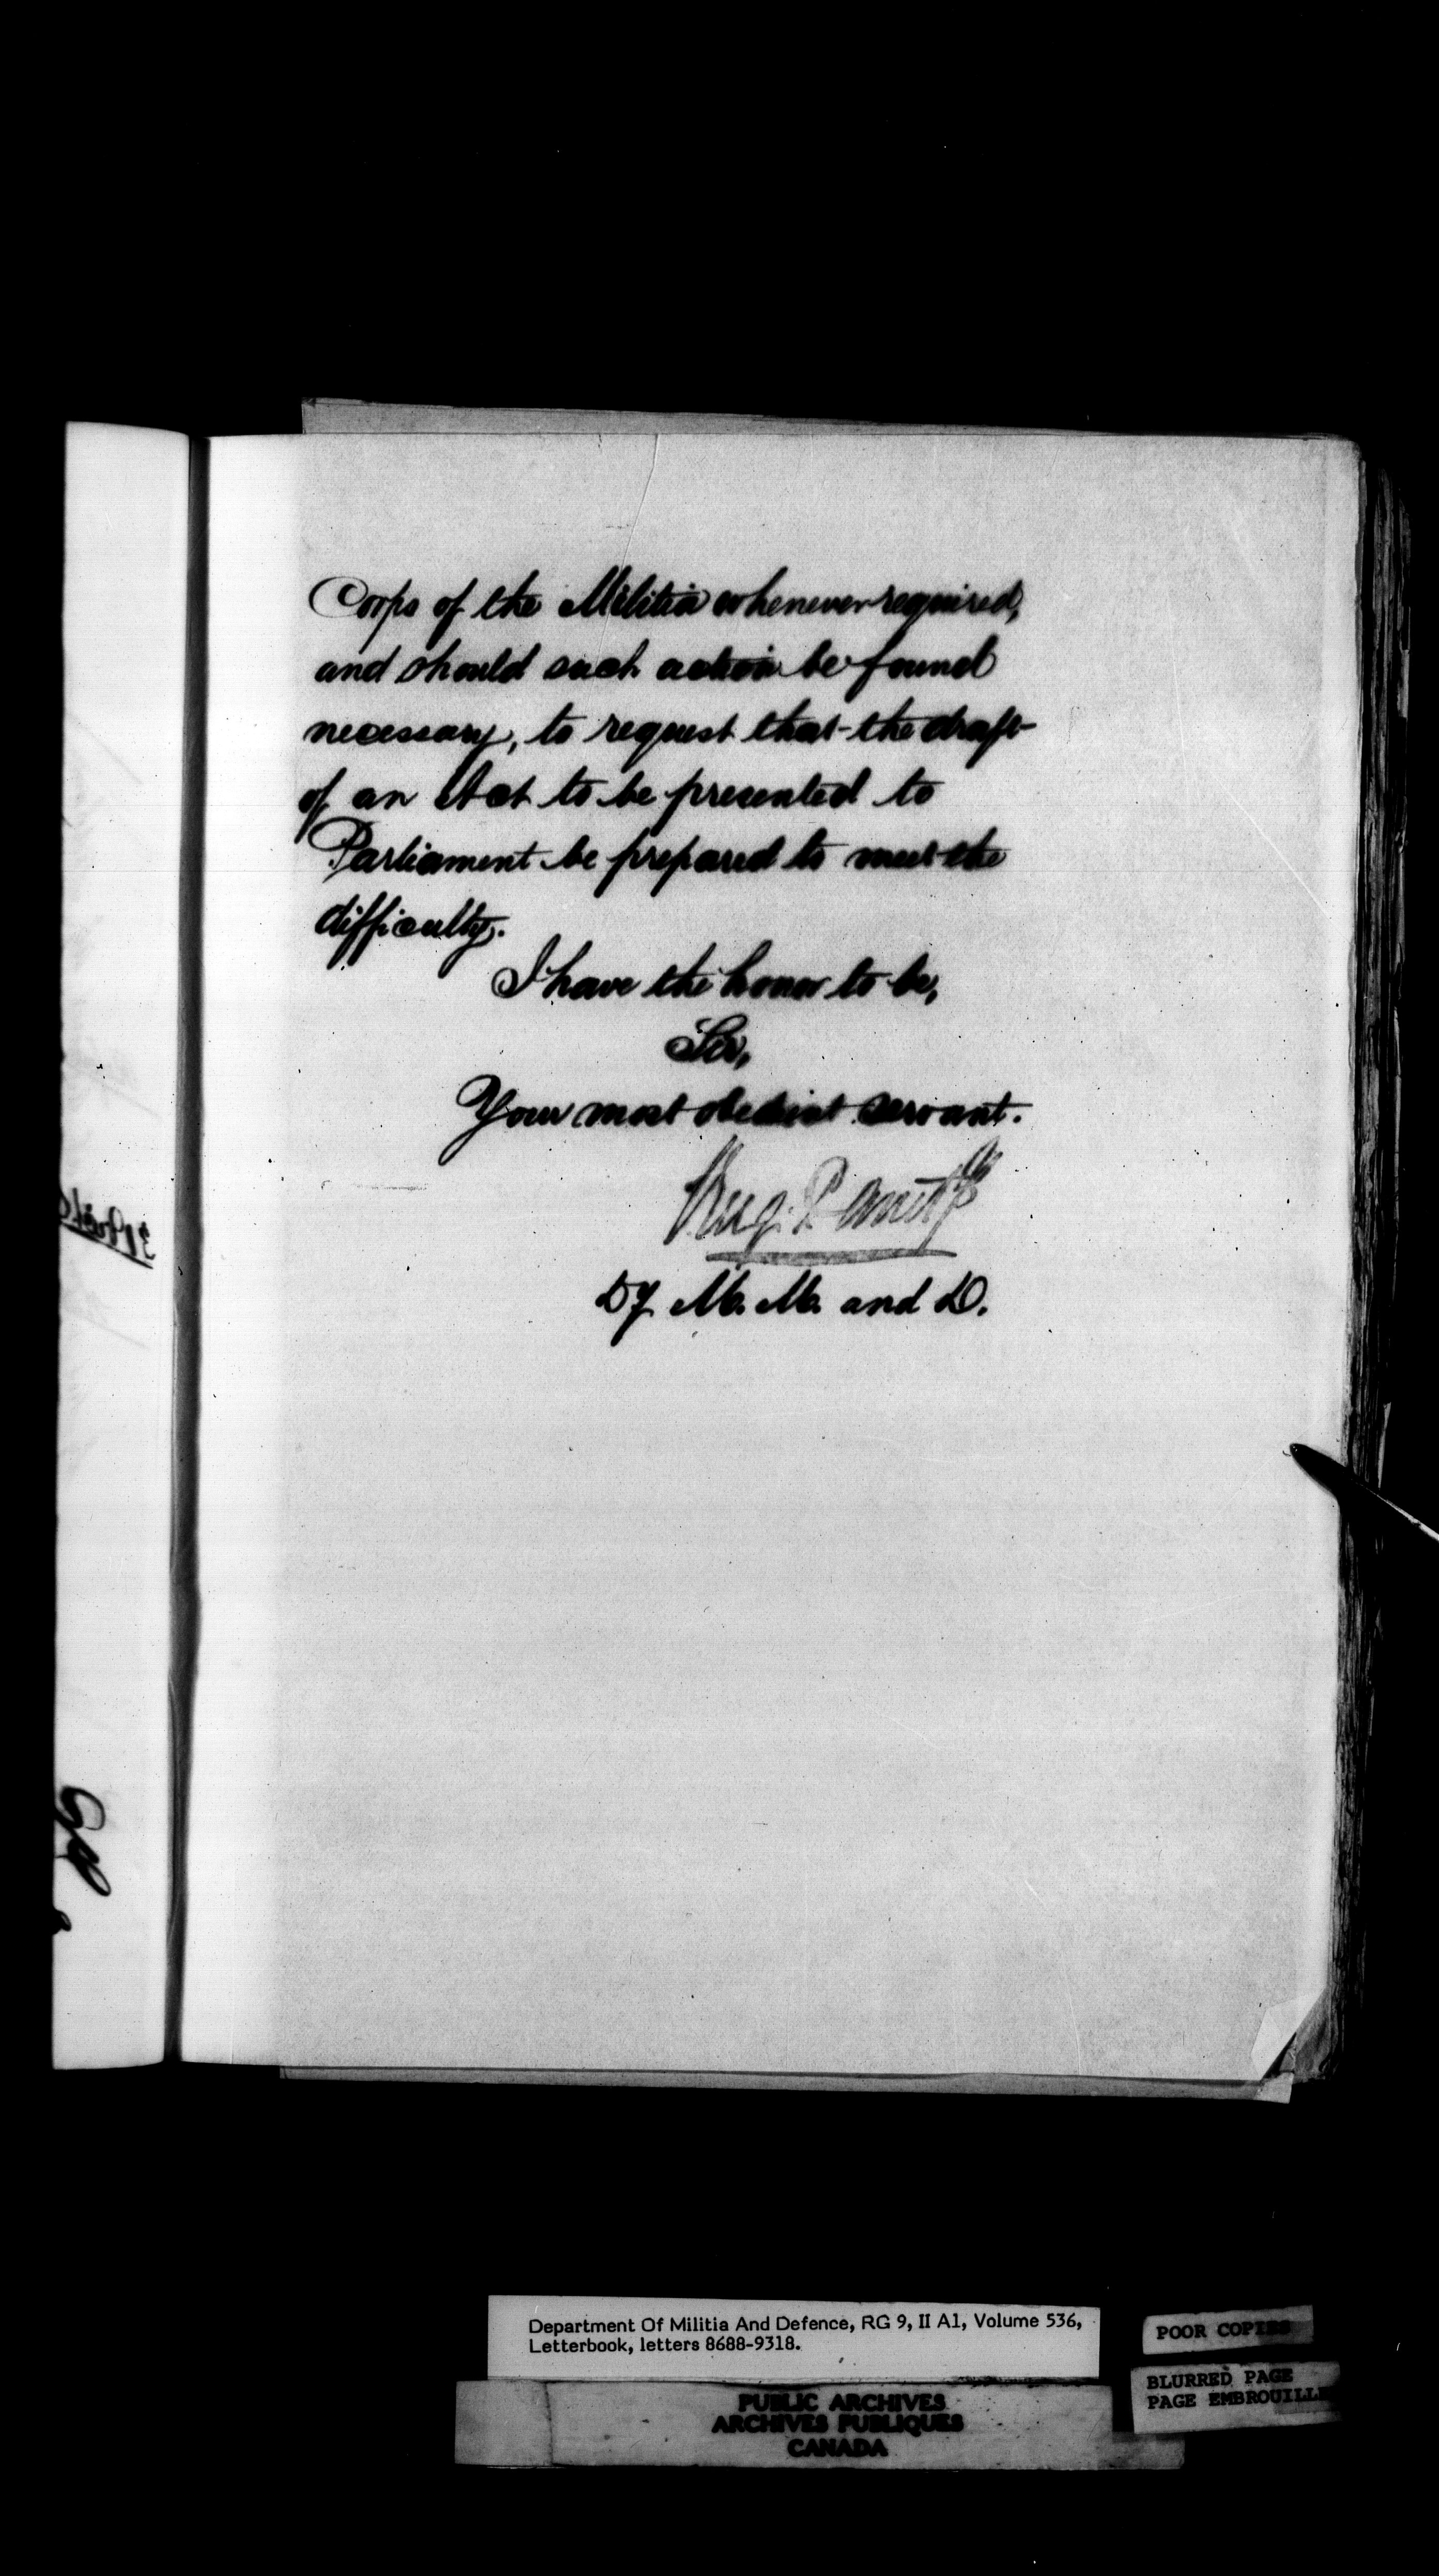 Corps of the Militia whenever required,
and should such action be found
necessary, to request that the draft
of an Act to be presented to
Parliament be prepared to meet the
difficulty.
I have the honor to be,
Sir,
Your most obedient servant.
Eug. Panet
Dy M. M. and D.
Department Of Militia And Defence, RG 9, II A1, Volume 536,
Letterbook, letters 8688-9318.
POOR COPIES
BLURRED PAGE
PAGE EMBROUILLE
PUBLIC ARCHIVES
ARCHIVES PUBLIQUES
CANADA